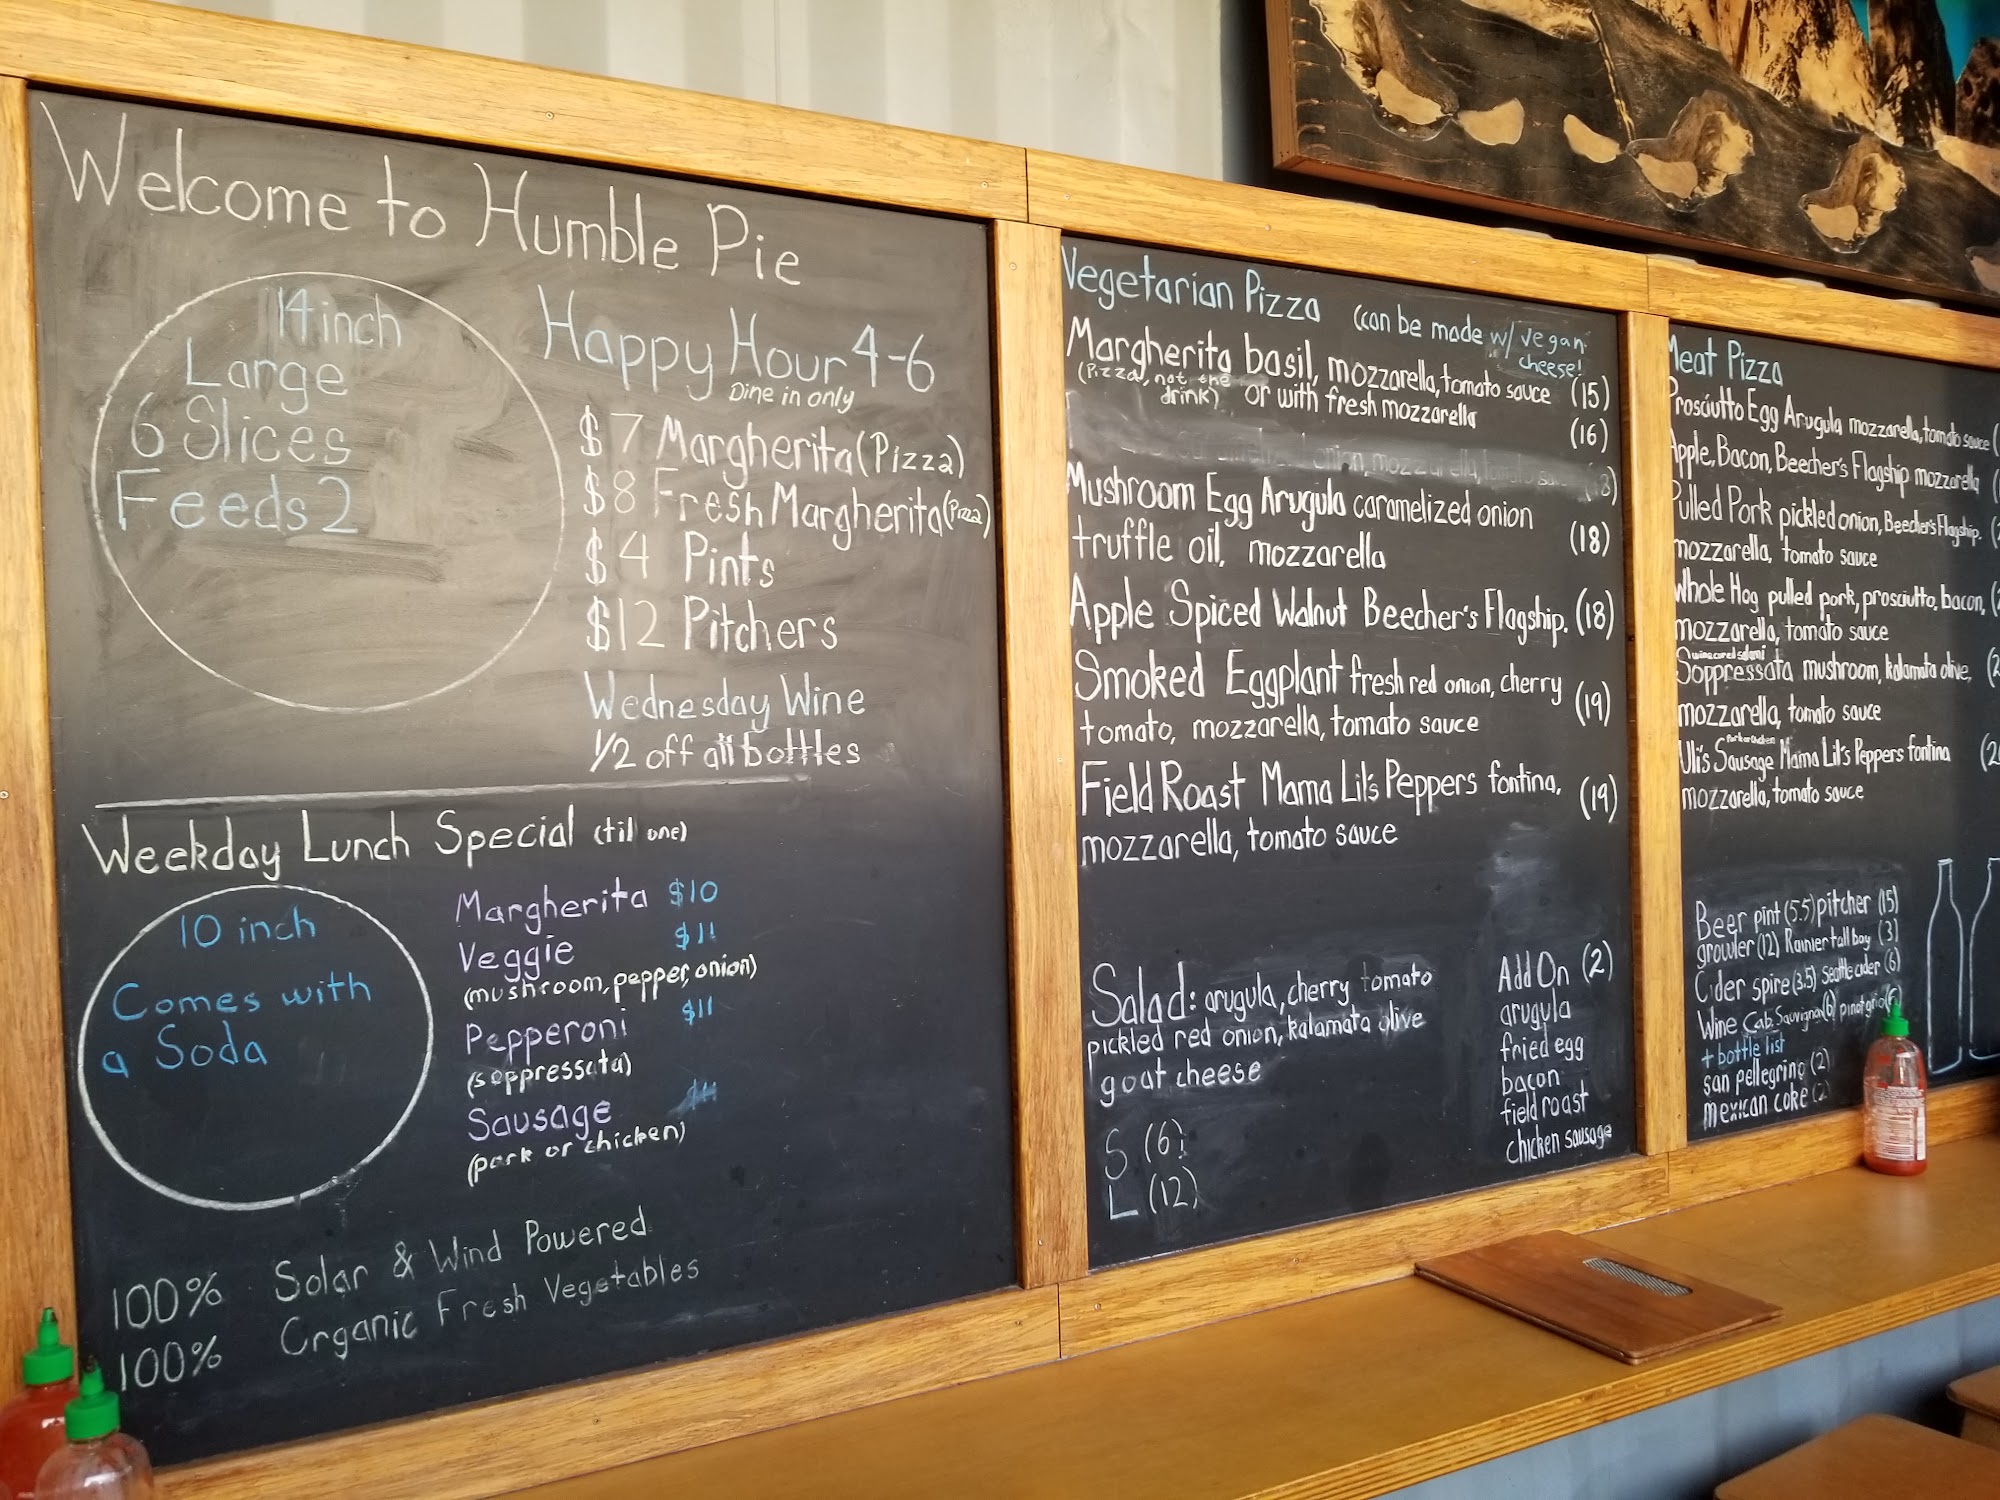 Welcome to Humble Pie
14 inch
Large
6 Slices
Feeds 2
Happy Hour 4-6
Dine in only
$7 Margherita (Pizza)
$8 Fresh Margherita (Pizza)
$4 Pints
$12 Pitchers
Wednesday Wine
1/2 off all bottles
Weekday Lunch Special (til one)
10 inch
Comes with
a Soda
Margherita $10
Veggie $11
(mushroom, pepper, onion)
Pepperoni $11
(soppressata)
Sausage $11
(pork or chicken)
100% Solar & Wind Powered
100% Organic Fresh Vegetables
Vegetarian Pizza (can be made w/ vegan
cheese!
Margherita basil, mozzarella, tomato sauce (15)
(Pizza, not the
drink) or with fresh mozzarella (16)
Mushroom Egg Arugula caramelized onion
truffle oil, mozzarella (18)
Apple Spiced Walnut Beecher's Flagship. (18)
Smoked Eggplant fresh red onion, cherry
tomato, mozzarella, tomato sauce (19)
Field Roast Mama Lil's Peppers fontina,
mozzarella, tomato sauce (19)
Salad: arugula, cherry tomato
pickled red onion, kalamata olive
goat cheese
S (6)
L (12)
Add On (2)
arugula
fried egg
bacon
field roast
chicken sausage
Meat Pizza
Prosciutto Egg Arugula mozzarella, tomato sauce
Apple, Bacon, Beecher's Flagship mozzarella
Pulled Pork pickled onion, Beecher's Flagship.
mozzarella, tomato sauce
Whole Hog pulled pork, prosciutto, bacon,
mozzarella, tomato sauce
wine cured salami
Soppressata mushroom, kalamata olive,
mozzarella, tomato sauce
pork or chicken
Uli's Sausage Mama Lil's Peppers fontina
mozzarella, tomato sauce
Beer pint (5.5) pitcher (15)
growler (12) Rainier tall boy (3)
Cider spire (3.5) seattle cider (6)
Wine Cab. Sauvignon (6) pinot grigio
+ bottle list
san pellegrino (2)
mexican coke (2)